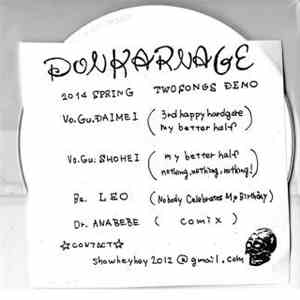 DONKARNAGE
2014 SPRING TWOSONGS DEMO
Vo.Gu.DAIMEI (3rd happy hardgate
my better half)
Vo.Gu.SHOHEI (my better half
nothing,nothing,nothing!)
Ba. LEO (Nobody Celebrates My Birthday)
Dr. ANABEBE (comix)
☆CONTACT☆
showheyhey2012@gmail.com